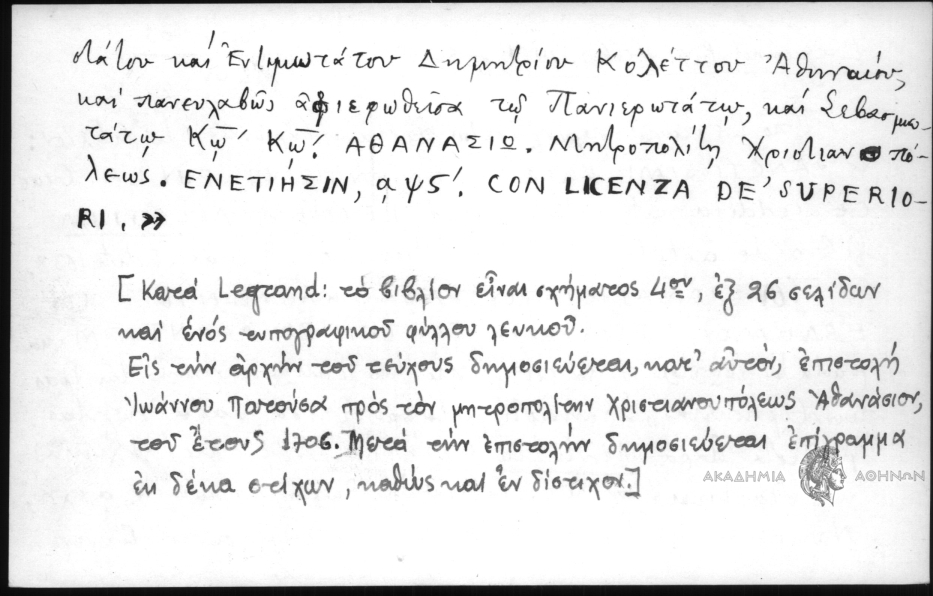 τάτου καὶ Ἐντιμωτάτου Δημητρίου Κολέττου Ἀθηναίου,
καὶ πανευλαβῶς ἀφιερωθεῖσα τῷ Πανιερωτάτῳ, καὶ Σεβασμιω-
τάτῳ Κῷ Κῷ. ΑΘΑΝΑΣΙῼ. Μητροπολίτῃ Χριστιανοπό-
λεως. ΕΝΕΤΙΗΣΙΝ, αψϛ'. CON LICENZA DE' SUPERIO-
RI. »
[Κατά Legrand: τὸ βιβλίον εἶναι σχήματος 4ου, ἐξ 26 σελίδων
καί ἑνός τυπογραφικοῦ φύλλου λευκοῦ.
Εἰς τὴν ἀρχήν τοῦ τεύχους δημοσιεύεται, κατ' αὐτόν, ἐπιστολή
Ἰωάννου Πατούσα πρὸς τὸν μητροπολίτην Χριστιανουπόλεως Ἀθανάσιον,
τοῦ ἔτους 1706. Μετά τὴν ἐπιστολήν δημοσιεύεται ἐπίγραμμα
ἐκ δέκα στίχων, καθώς καί ἕν δίστιχον.]
ΑΚΑΔΗΜΙΑ ΑΘΗΝΩΝ